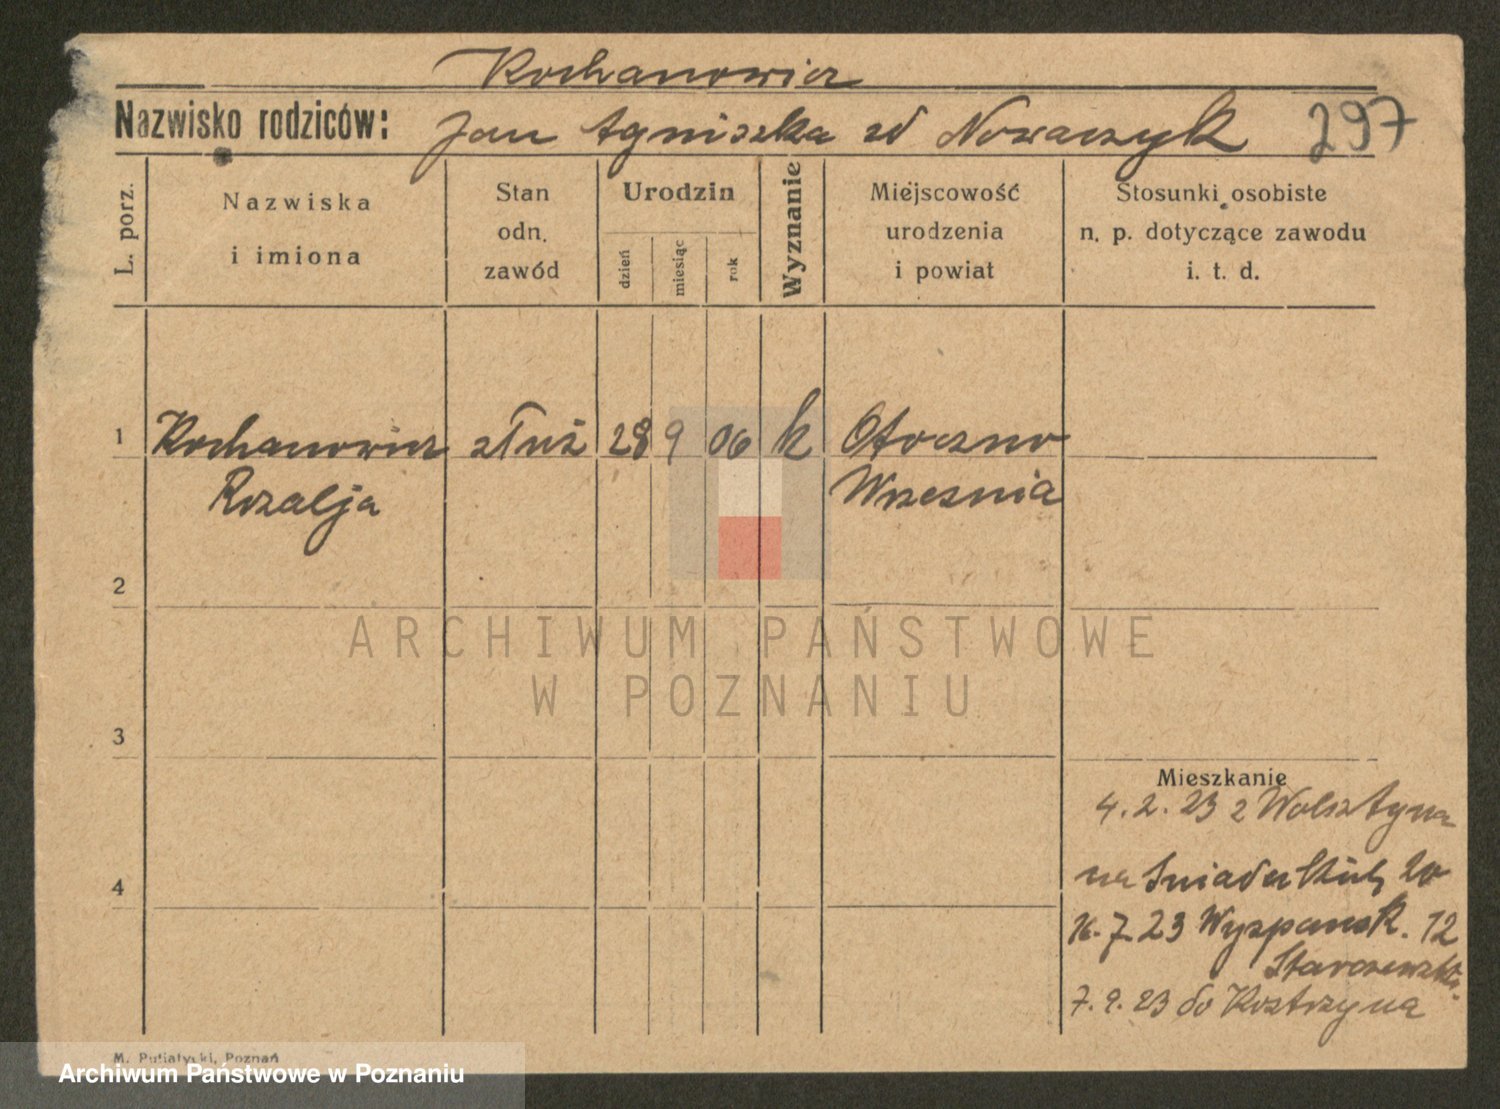 Kochanowicz
Nazwisko rodziców: Jan Agniszka zd Nowaczyk 297
L. porz.
Nazwiska
i imiona
Stan
odn.
zawód
Urodzin
dzień
miesiąc
rok
Wyznanie
Miejscowość
urodzenia
i powiat
Stosunki osobiste
n. p. dotyczące zawodu
i. t. d.
1 Kochanowicz służ 28 9 06 k Otoczno
Rozalja Wrzesnia
2
ARCHIWUM PAŃSTWOWE
W POZNANIU
3
Mieszkanie
4. 2. 23 z Wolsztyna
na Sniadeckich 20
4
16. 7. 23 Wyspiansk. 12
7. 9. 23 do Kostrzyna
M. Putiatycki, Poznań
Archiwum Państwowe w Poznaniu